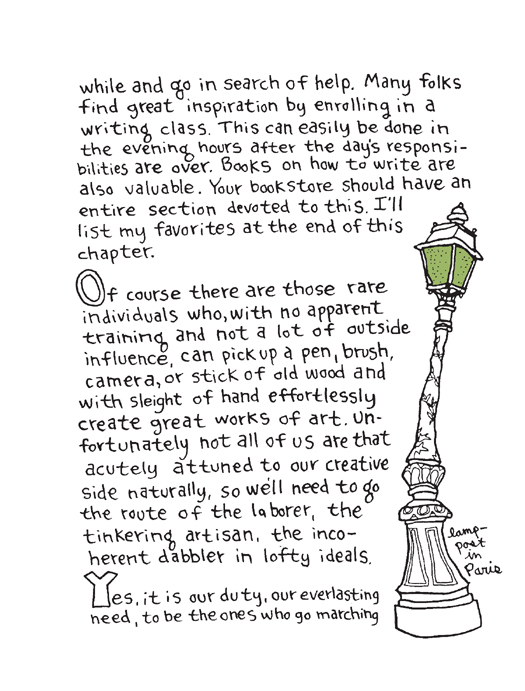 while and go in search of help. Many folks
find great inspiration by enrolling in a
writing class. This can easily be done in
the evening hours after the day's responsi-
bilities are over. Books on how to write are
also valuable. Your bookstore should have an
entire section devoted to this. I'll
list my favorites at the end of this
chapter.
Of course there are those rare
individuals who, with no apparent
training and not a lot of outside
influence, can pick up a pen, brush,
camera, or stick of old wood and
with sleight of hand effortlessly
create great works of art. Un-
fortunately not all of us are that
acutely attuned to our creative
side naturally, so we'll need to go
the route of the laborer, the
tinkering artisan, the inco-
herent dabbler in lofty ideals.
Yes, it is our duty, our everlasting
need, to be the ones who go marching
lamp-
post
in
Paris